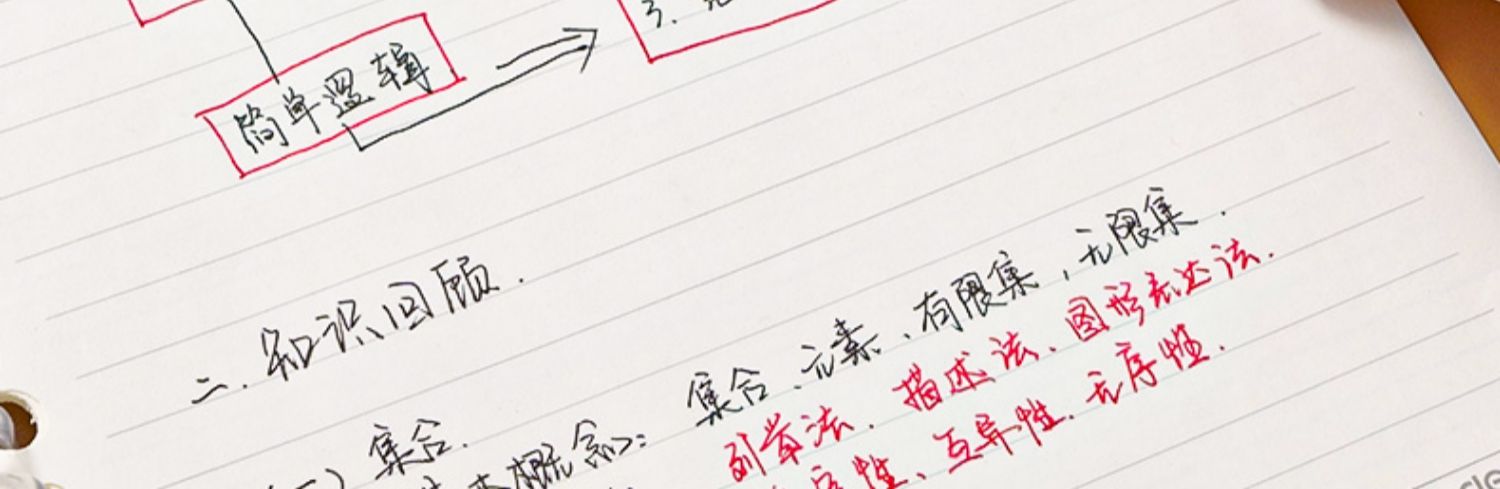 3.
简单逻辑
二.知识回顾.
(一)集合.
基本概念: 集合、元素、有限集,无限集.
列举法.描述法.图形表达法.
定性、互异性.无序性.